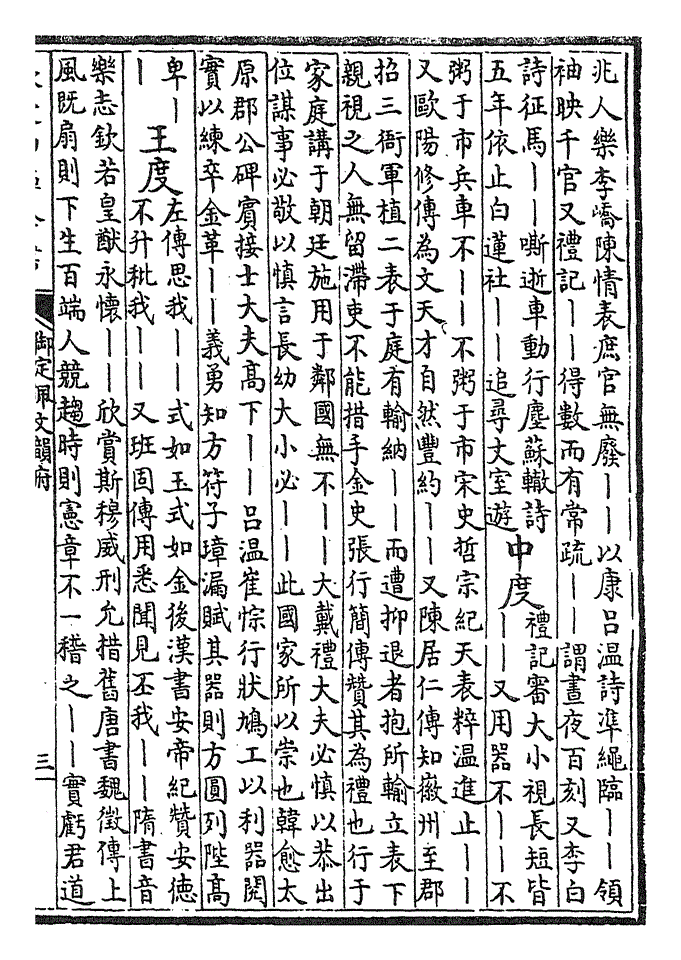 兆人樂李嶠陳情表庶官無廢丨丨以康吕温詩準繩臨丨丨領
袖映千官又禮記丨丨得數而有常疏丨丨謂晝夜百刻又李白
詩征馬丨丨嘶逝車動行塵蘇轍詩
五年依止白蓮社丨丨追尋文室遊
中度
禮記審大小視長短皆
丨丨又用器不丨丨不
粥于市兵車不丨丨不粥于市宋史哲宗紀天表粹温進止丨丨
又歐陽修傳為文天才自然豐約丨丨又陳居仁傳知徽州至郡
招三衙軍植二表于庭有輸納丨丨而遭抑退者抱所輸立表下
親視之人無留滯吏不能措手金史張行簡傳贊其為禮也行于
家庭講于朝廷施用于鄰國無不丨丨大戴禮大夫必慎以恭出
位謀事必敬以慎言長幼大小必丨丨此國家所以崇也韓愈太
原郡公碑賓接士大夫高下丨丨吕温崔悰行狀鳩工以利器閲
實以練卒金革丨丨義勇知方符子璋漏賦其器則方圓列陛高
卑丨
丨
王度
左傳思我丨丨式如玉式如金後漢書安帝紀贊安德
不升秕我丨丨又班固傳用悉聞見丕我丨丨隋書音
樂志欽若皇猷永懷丨丨欣賞斯穆威刑允措舊唐書魏徵傳上
風既扇則下生百端人競趨時則憲章不一稽之丨丨實虧君道
御定佩文韻府
三